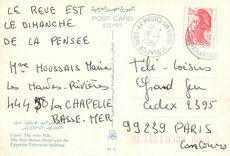 LE REVE EST
LE DIMANCHE
DE LA PENSEE
POST CARD
EGYPT
Mme MOUSSAIS Marie
Les Hautes-Rivières
44450 La CHAPELLE
BASSE-MER
Télé-Loisirs
Grand Jeu
Cedex 2395
99239 PARIS
Concours
2,20
Cairo: The
The Nile Hilton Hotel and the
Egyptian Television building